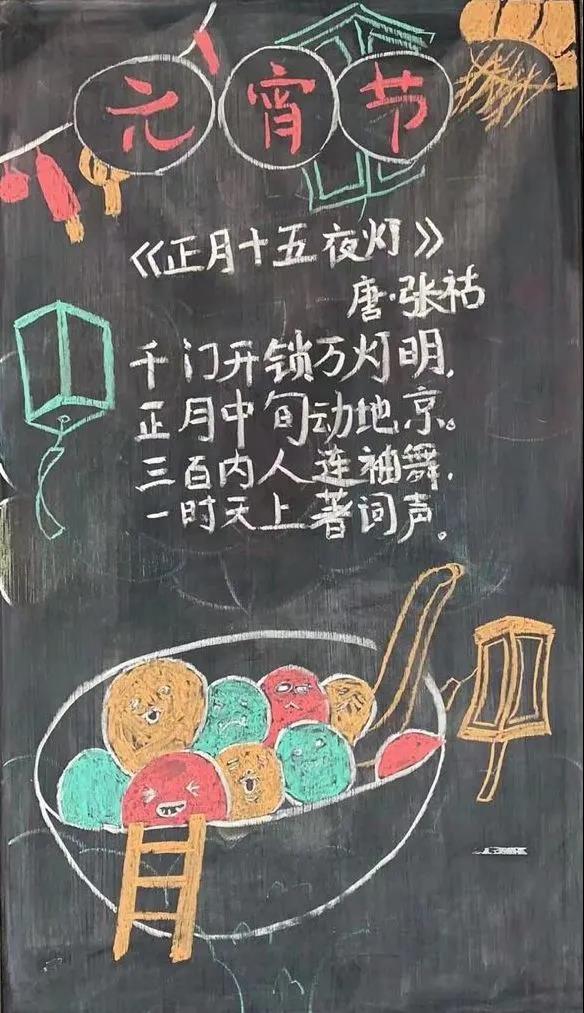 元宵节
《正月十五夜灯》
唐·张祜
千门开锁万灯明,
正月中旬动地京。
三百内人连袖舞,
一时天上著词声。